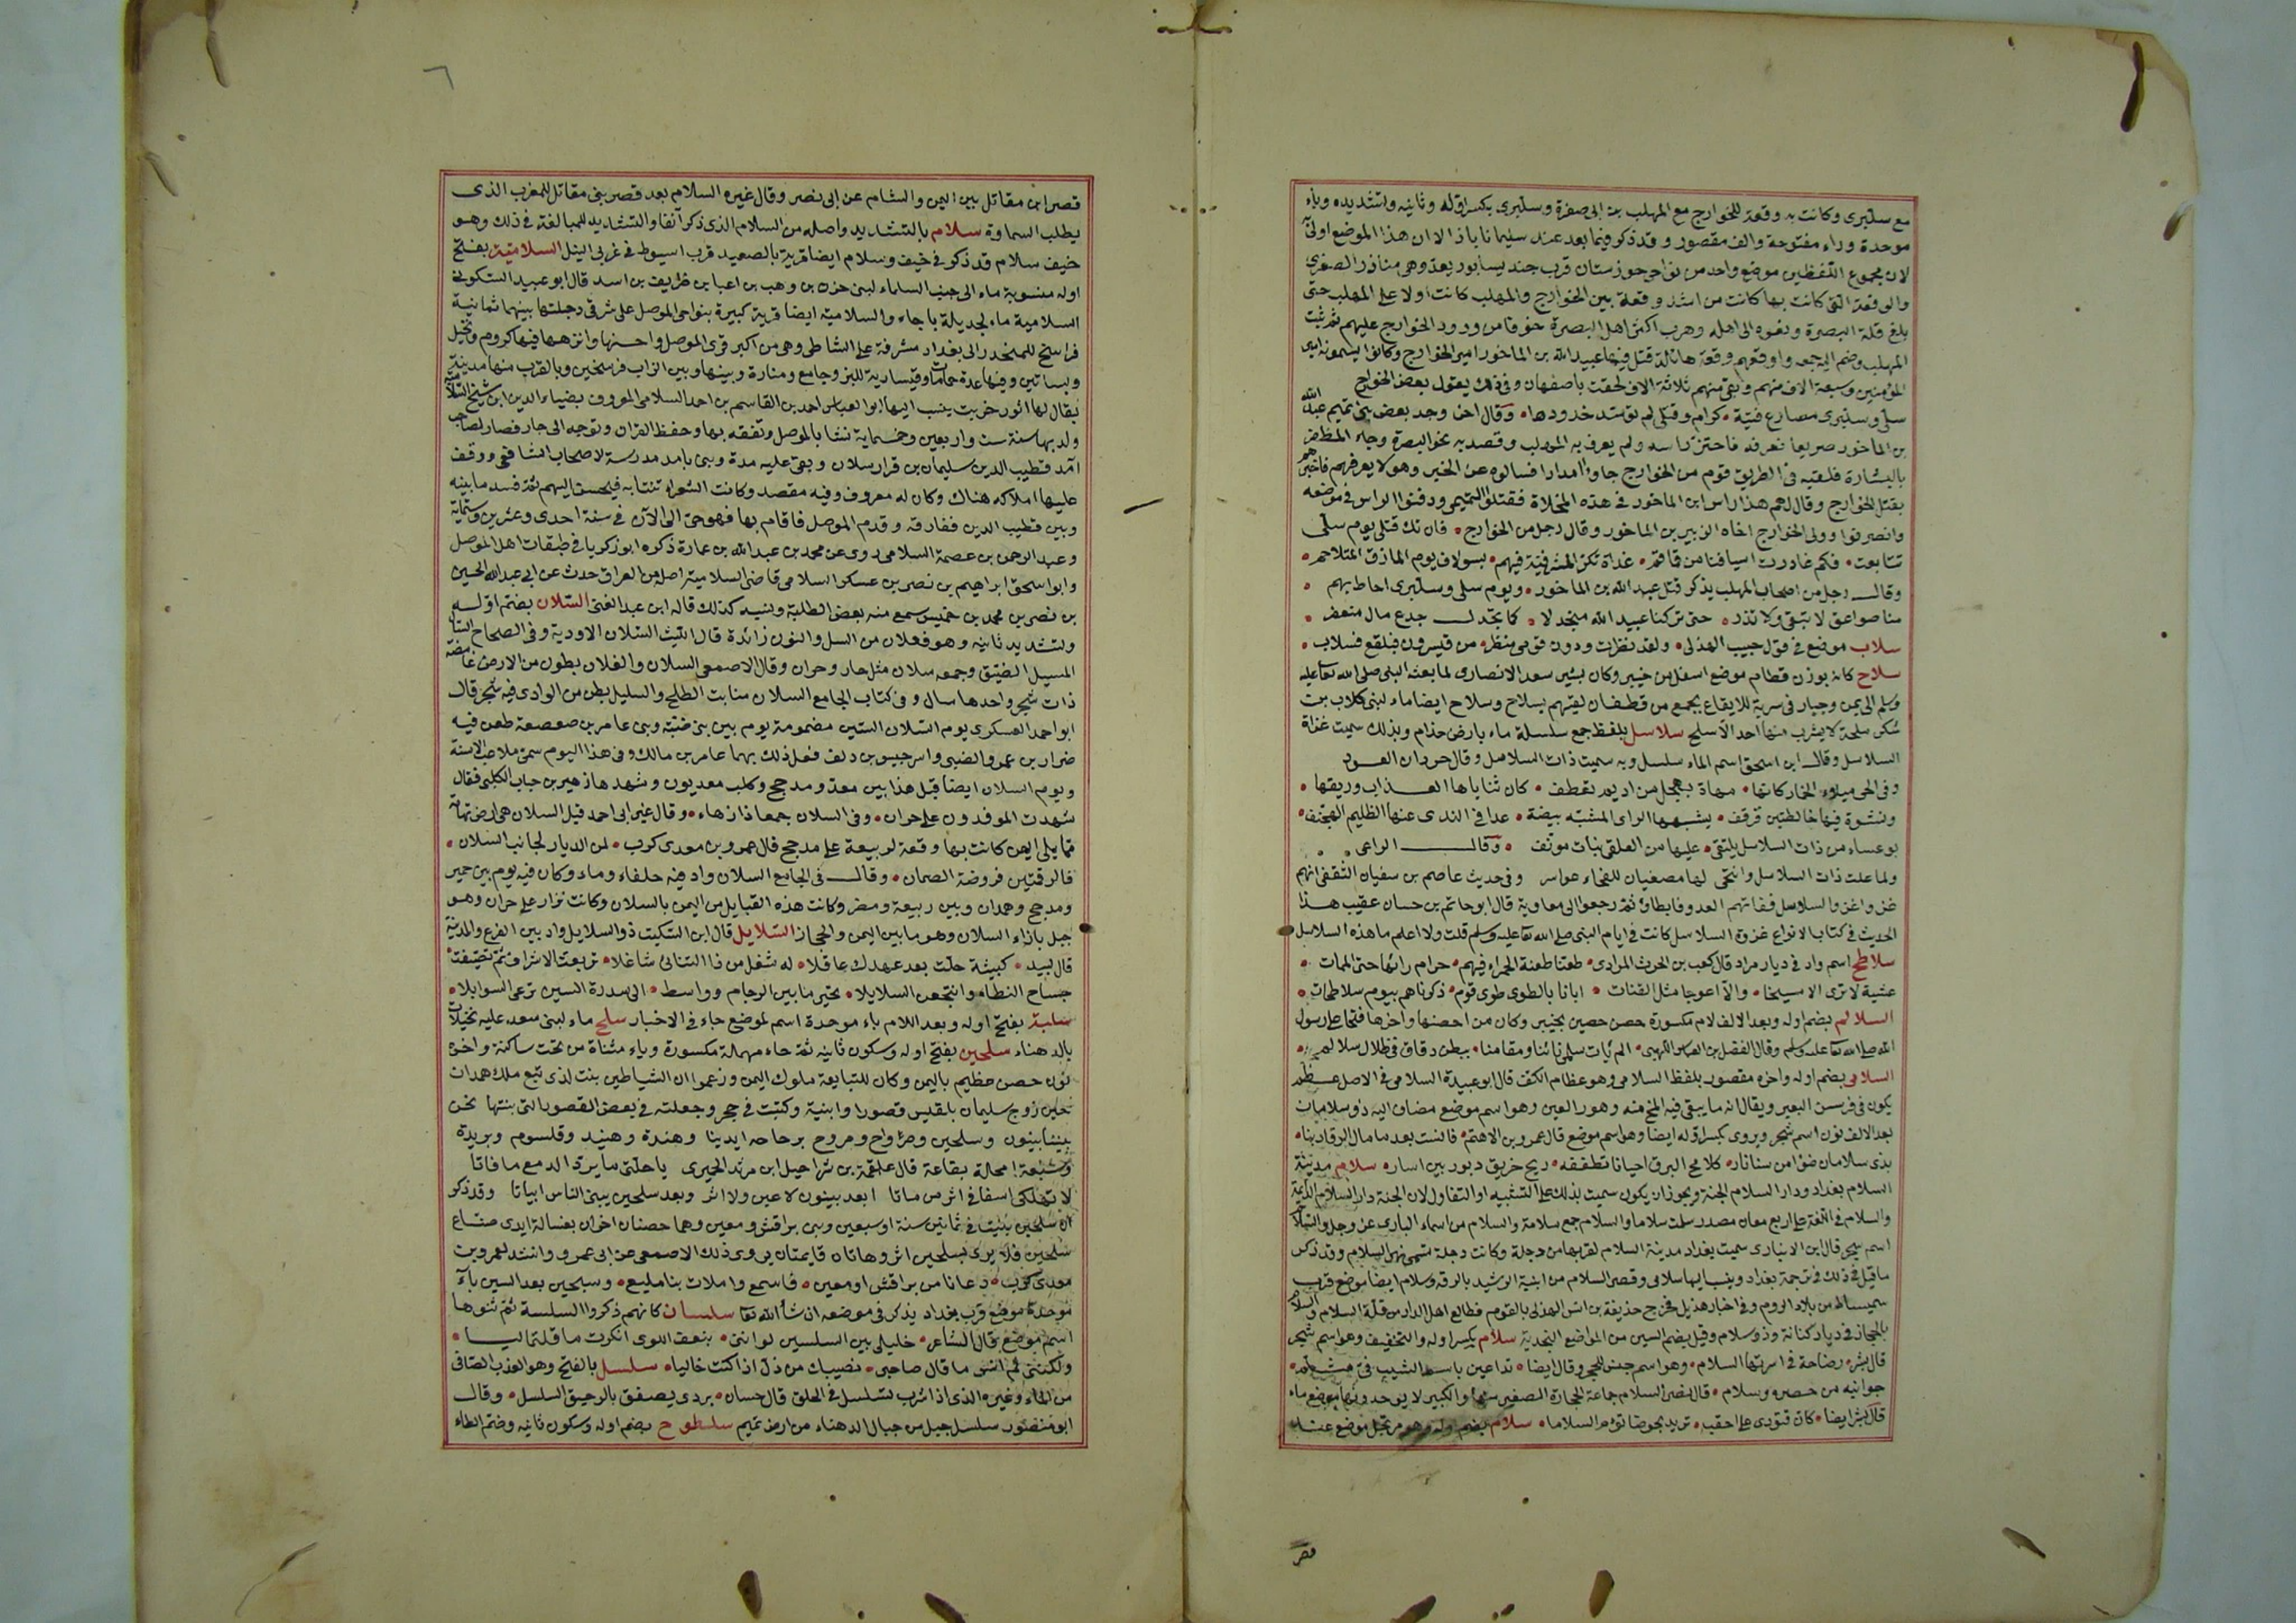 مع سلبرى وكانت به وقعة للخوارج مع المهلب بن ابى صفرة وسلبرى بكسر اوله وثانيه وتشديده وباء
موحدة وراء مفتوحة والف مقصور وقد ذكر فيما بعد عند سليمانا باذا الا ان هذا الموضع اولى
لان مجموع اللفظين موضع واحد من نواحى خوزستان قرب جند يسابور بعد وهى مناذر الصغرى
والوقعة التى كانت بها كانت من اشد وقعة بين الخوارج والمهلب كانت اولا على المهلب حتى
بلغ فلة البصرة ونعوه الى اهله وهرب اكثر اهل البصرة خوفا من ورود الخوارج عليهم ثم ثبت
المهلب وضم اليه جمعه واوقعهم وقعة هائلة قتل فيها عبيد الله بن الماخور امير الخوارج وكانوا يسمونه امير
المؤمنين وسبعة الاف منهم وبقى منهم ثلاثة الاف لحقت باصفهان وفى ذلك يقول بعض الخوارج
سلى وسلبرى مصارع فتية • كرام وقتلى لم توسد خدودها • وقال اخر وجد بعض بنى تميم عبد الله
بن الماخور صريعا فعرفه فاحتز راسه ولم يعرف به المهلب وقصد به نحو البصرة وجاء المظفر
بالبشارة فلقيه فى الطريق قوم من الخوارج جاوا امدادا فسالوه عن الخبر وهو لا يعرفهم فاخبرهم
بقتل الخوارج وقال لهم هذا راس ابن الماخور فى هذه المخلاة فقتلوا التميمى ودفنوا الراس فى موضعه
وانصرفوا وولى الخوارج اخاه الزبير بن الماخور وقال رجل من الخوارج • فان تك قتلى يوم سلى
تتابعت • فكم غادرت اسيافنا من قماقم • غداة نكر المشرفية فيهم • بسولاف يوم المازق المتلاحم •
وقال رجل من اصحاب المهلب يذكر قتل عبد الله بن الماخور • ويوم سلى وسلبرى احاط بهم •
منا صواعق لا تبقى ولا تذر • حتى تركنا عبيد الله منجدلا • كما تجدل جدع مال منعفر •
سلاب موضع فى قول حبيب الهذلى • ولقد نظرت ودون قومى منظر • من قيسرون فبلقع فسلاب •
سلاح كانه بوزن قطام موضع اسفل من خيبر وكان بشير سعد الانصارى لما بعثه النبى صلى الله تعا عليه
وسلم الى يمن وجبار فى سرية للايقاع بجمع من غطفان لقيهم بسلاح وسلاح ايضا ماء لبنى كلاب بن
شكر سلحة لا يشرب منها احد الا سلح سلاسل بلفظ جمع سلسلة ماء بارض جذام وبذلك سميت غزاة
السلاسل وقال ابن اسحق اسم الماء سلسل وبه سميت ذات السلاسل وقال جران العود
وفى الحى ميلاء الخمار كانها • مهاة بهجل من اديم تعطف • كان ثناياها العذاب وريقها •
ونشوة فيها خالطتهن قرقف • يشبهها الراى المشبه بيضة • عدا فى الندى عنها الظليم الهجنف •
بوعساء من ذات السلاسل يلتقى • عليها من العلقى نبات مونف • وقال الراعى •
ولما علت ذات السلاسل وانتحى لها مصغيان للنجاء عواسر وفى حديث عاصم بن سفيان الثقفى انهم
غزوا غزو السلاسل ففاتهم العدو فابطاؤ ثم رجعوا الى معاوية قال ابو حاتم بن حسان عقيب هذا
الحديث فى كتاب الانواع غزوة السلاسل كانت فى ايام النبى صلى الله تعا عليه وسلم قلت ولا اعلم ما هذه السلاسل
سلاطح اسم واد فى ديار مراد قال كعب بن الحرث المرادى • طعنا طعنة الحمراء فيهم • حرام رائها حتى الممات •
عشية لا ترى الا مشيحا • والا اعوجا مثل القنات • ابانا بالطوى طوى قوم • ذكرناهم بيوم سلاطحات •
السلالم بضم اوله وبعد الالف لام مكسورة حصن حصين بخيبر وكان من احصنها واخرها فتحا على رسول
الله صلى الله تعا عليه وسلم وقال الفضل بن العباس اللهبى • الم يات سلمى نائنا ومقامنا • ببطن دقاق فى ظلال سلالم •
السلامى بضم اوله واخره مقصور بلفظ السلامى وهو عظام الكف قال ابو عبيدة السلامى فى الاصل عظم
يكون فى فرسن البعير ويقال انه ما يبقى فيه المخ منه وهو العين وهو اسم موضع مضاف اليه ذو سلامان
بعد الالف نون اسم شجر ويروى بكسر اوله ايضا وهو اسم موضع قال عمرو بن الاهتم • فانست بعد ما مال الرقاد بنا •
بذى سلامان ضوا من سنا نار • كلامح البرق احيانا تطففه • ريح خريق دبور بين اسار • سلام مدينة
السلام بغداد ودار السلام الجنة ويجوز ان يكون سميت بذلك على التشبيه او التفاول لان الجنة دار السلام الدائمة
والسلام فى اللغة على اربع معان مصدر سلمت سلاما والسلام جمع سلامة والسلام من اسماء البارى عز وجل والسلام
اسم شجر قال ابن الانبارى سميت بغداد مدينة السلام لقربها من دجلة وكانت دجلة تسمى نهر السلام وقد ذكر
ما قيل فى ذلك فى ترجمة بغداد وينسب اليها سلامى وقصر السلام من ابنية الرشيد بالرقة وسلام ايضا موضع قرب
سميساط من بلاد الروم وفى اخبار هذيل فخرج حذيفة بن انس الهذلى بالقوم فطالع اهل الدار من قلة السلام والسلام
بالحجاز فى ديار كنانة وذو سلام وقيل بضم السين من المواضع النجدية سلام بكسر اوله والتخفيف وهو اسم شجر
قال بشر • بصاحة فى اسرتها السلام • وهو اسم جنس للحجر وقال ايضا • تداعين باسم الشيب فى متثلم •
جوانبه من بصرة وسلام • قال نصر السلام جماعة الحجارة الصغير منها والكبير لا يوحدونها موضع ماء
قال بشر ايضا • كان قتودى على احقب • تريد نحوضا تؤم السلاما • سلام بضم اوله وهو مرتجل موضع عند
قصر
قصر ابن مقاتل بين اليمن والشام عن ابى نصر وقال غيره السلام بعد قصر بنى مقاتل للمغرب الذى
يطلب السماوة سلام بالتشديد واصله من السلام الذى ذكر آنفا والتشديد للمبالغة فى ذلك وهو
خيف سلام قد ذكر فى خيف وسلام ايضا قرية بالصعيد قرب اسيوط فى غربى النيل السلامية بفتح
اوله منسوبة ماء الى جنب السلماء لبنى حزن بن وهب بن اعيا بن طريف بن اسد قال ابو عبيد السكونى
السلامية ماء لجديلة باجاء والسلامية ايضا قرية كبيرة بنواحى الموصل على شرقى دجلتها بينهما ثمانية
فراسخ للمنحدر الى بغداد مشرفة على الشاطى وهى من اكبر قرى الموصل واحسنها وانزهها فيها كروم ونخيل
وبساتين وفيها عدة حمامات وقيسارية للبز وجامع ومنارة وبينها وبين الزاب فرسخين وبالقرب منها مدينة
يقال لها اثور خربت ينسب اليها ابو العباس احمد بن القاسم بن احمد السلامى المعروف بضياء الدين ابن شيخ السلامية
ولد بها سنة ست واربعين وخمسماية نشا بالموصل وتفقه بها وحفظ القران وتوجه الى ديار بكر فصار لصاحب
آمد قطب الدين سليمان بن قرارسلان وبقى عليه مدة وبنى بامد مدرسة لاصحاب الشافعى ووقف
عليها املاكه هناك وكان له معروف وفيه مقصد وكانت الشعراء تنتابه فيحسن اليهم ثم فسد ما بينه
وبين قطب الدين ففارقه وقدم الموصل فاقام بها فهو حى الى الآن فى سنة احدى وعشرين وستماية
وعبد الرحمن بن عصمة السلامى روى عن محمد بن عبد الله بن عمارة ذكره ابو زكريا فى طبقات اهل الموصل
وابو اسحق ابراهيم بن نصر بن عسكر السلامى قاضى السلامية اصله من العراق حدث عن ابى عبد الله الحسين
بن نصر بن محمد بن خميس سمع منه بعض الطلبة ونسبه كذلك قاله ابن عبد الغنى السلان بضم اوله
وتشديد ثانيه وهو فعلان من السل والنون زائدة قال الليث السلان الاودية وفى الصحاح السال
المسيل الضيق وجمعه سلان مثل حار وحران وقال الاصمعى السلان والفلان بطون من الارض غامضة
ذات شجر واحدها سال وفى كتاب الجامع السلان منابت الطلح والسليل بطن من الوادى فيه شجر قال
ابو احمد العسكرى يوم السلان السين مضمومة يوم بين بنى ضبة وبنى عامر بن صعصعة طعن فيه
ضرار بن عمرو الضبى واسر حبيس بن دلف فعل ذلك بهما عامر بن مالك وفى هذا اليوم سمى ملاعب الاسنة
ويوم السلان ايضا قبل هذا بين معد ومذحج وكلب معديون وشهدها زهير بن جباب الكلبى فقال
شهدت الموفدون على حران • وفى السلان جمعا ذا زهاء • وقال غير ابى احمد قيل السلان هى ارض تهامة
مما يلى اليمن كانت بها وقعة لربيعة على مذحج قال عمرو بن معدى كرب • لمن الديار لجانب السلان •
فالرقتين فروضة الصمان • وقال فى الجامع السلان واد فيه حلفاء وماء وكان فيه يوم بين حمير
ومذحج وهمدان وبين ربيعة ومضر وكانت هذه القبايل من اليمن بالسلان وكانت نزار على حران وهو
جبل بازاء السلان وهو ما بين اليمن والحجاز السلايل قال ابن السكيت ذو السلايل واد بين الفرع والمدينة
قال لبيد • كبيشة حلت بعد عهدك عاقلا • له شغل من فا التنائى شاغلا • تربعت الاشراف ثم تصيفت •
حساح البطاه وانتجعن السلايلا • تخير ما بين الرجام وواسط • الى سدرة السين ترعى السوابلا •
سلبة بفتح اوله وبعد اللام باء موحدة اسم لموضع جاء فى الاخبار سلح ماء لبنى سعد عليه نخيلات
بالدهناء سلحين بفتح اوله وسكون ثانيه ثم حاء مهملة مكسورة وياء مثناة من تحت ساكنة واخره
نون حصن عظيم باليمن وكان للتبابعة ملوك اليمن وزعموا ان الشياطين بنت لذى تبع ملك همدان
حين زوج سليمان بلقيس قصورا وابنية وكتبت فى حجر وجعلته فى بعض القصور التى بنتها نحن
بنينا بينون وسلحين وصرواح ومرواح برجاجة ايدينا وهندة وهنيد وقلسوم وبريدة
وسبعة امحالة بقاعة قال علقمة بن شراحيل ابن مرثد الحميرى يا خلتى ما يرد الدمع ما فاتا
لا تهلكى اسفا فى اثر من ماتا ابعد بينون لا عين ولا اثر وبعد سلحين يبنى الناس ابياتا وقد ذكر
ان سلحين بنيت فى ثمانين سنة او سبعين وبنى براقش ومعين وهما حصنان اخران بغسالة ايدى صناع
سلحين فلا يرى بسلحين اثر وهاتان قايمتان يروى ذلك الاصمعى عن ابى عمرو وانشد لعمرو بن
معدى كرب • دعانا من براقش او معين • فاسمع واملات بنا مليع • وسبلحين بعد السين باء
موحدة موضع قرب بغداد يذكر فى موضعه ان شأ الله تعا سلسان كانهم ذكروا السلسة ثم ثنوها
اسم موضع قال الشاعر • خليلى بين السلسين لو اننى • بنعف اللوى انكرت ما قلتما ليا •
ولكننى لم انس ما قال صاحبى • نصيبك من ذل اذا كنت خاليا • سلسل بالفتح وهو العذب الصافى
من الماء وغيره الذى اذا شرب تسلسل فى الحلق قال حسان • بردى يصفق بالرحيق السلسل • وقال
ابو منصور سلسل جبل من جبال الدهناء من ارض تميم سلطوح بضم اوله وسكون ثانيه وضم الطاء